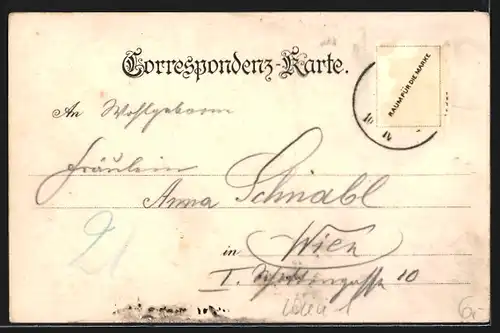 Correspondenz-Karte.
RAUM FÜR DIE MARKE
An Wohlgeboren
Fräulein
Anna Schnabl
in Wien
I. Schottengasse 10
21